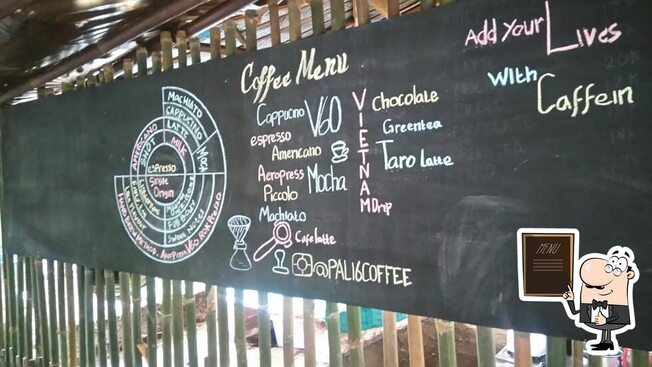 Add Your Lives
With
Caffein
Coffee Menu
Cappucino
V60
espresso
Americano
Aeropress
Mocha
Piccolo
Machiato
Cafe latte
@PALI6COFFEE
VIETNAM Drip
Chocolate
Greentea
Taro latte
MACHIATO
CAPPUCINO
LATTE
MILK
MOCA
AMERICANO
SHOT
espresso
Single
Origin
FULL BODY
MENU